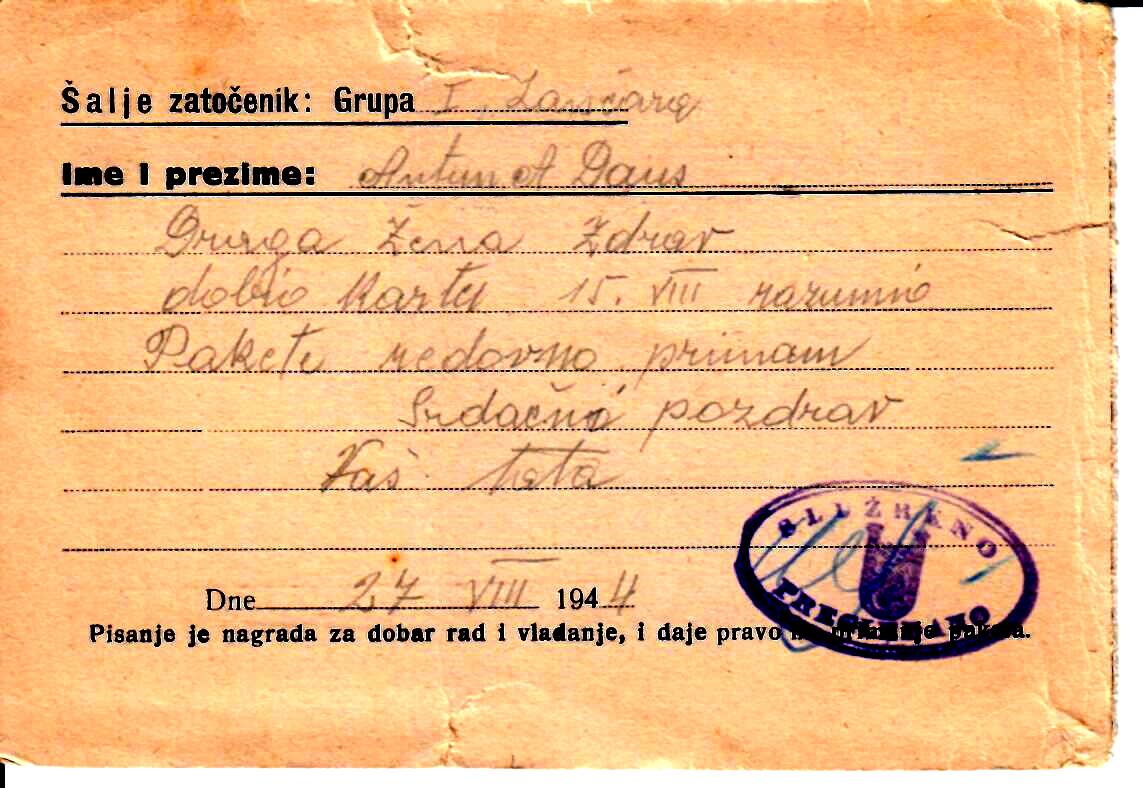 Šalje zatočenik: Grupa I Lančara
Ime i prezime: Antun A Daus
Druga Žena Zdrav
dobio kartu 15. VIII razumio
Pakete redovno primam
Srdačni pozdrav
Vaš tata
Dne 27 VIII 1944
Pisanje je nagrada za dobar rad i vladanje, i daje pravo na primanje paketa.
SLUŽBENO
PREGLEDANO